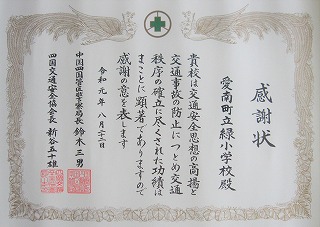 感謝状
愛南町立緑小学校殿
貴校は交通安全思想の高揚と
交通事故の防止につとめ交通
秩序の確立に尽くされた功績は
まことに顕著でありますので
感謝の意を表します
令和元年八月二十二日
中国四国管区警察局長 鈴木三男
四国交通安全協会長 新谷五十雄